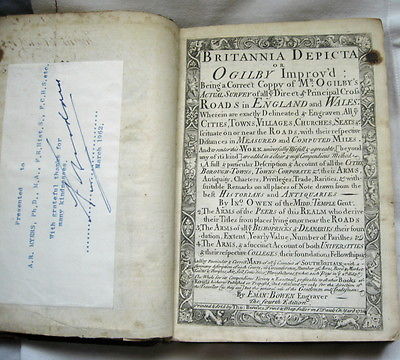 Presented to
A.R. MYERS, Ph.D., M.A., F.R.Hist.S., F.C.H.S., etc.
With grateful thanks for
many kindnesses
March 1962.
BRITANNIA DEPICTA
OR
OGILBY Improv'd:
Being a Correct Coppy of Mr. OGILBY'S
Actual Survey of all ye Direct & Principal Cross
ROADS in ENGLAND and WALES:
Wherein are exactly Delineated & Engraven, All ye
CITIES, TOWNS, VILLAGES, CHURCHES, SEATS &c.
scituate on or near the ROADS, with their respective
Distances in MEASURED and COMPUTED MILES.
And to render this WORK universally Usefull & agreeable, beyond
any of its kind are added in a clear & most Compendious Method
A full & particular Description & Account of all the CITIES,
BOROUGH-TOWNS, TOWNS-CORPORATE &c. their ARMS,
Antiquity, Charters, Privileges, Trade, Rarities, &c. with
suitable Remarks on all places of Note drawn from the
best HISTORIANS and ANTIQUARIES
By Ino. OWEN of the MIDD: TEMPLE Gent.
The ARMS of the PEERS of this REALM who derive
their Titles from places lying on or near the ROADS
The ARMS of all ye BISHOPRICKS & DEANARIES, their foun-
dation, Extent, Yearly Value, Number of Parishes, &c.
The ARMS, & a succinct Account of both UNIVERSITIES
& their respective COLLEGES, their foundation, Fellowships
By EMAN: BOWEN Engraver
The fourth Edition